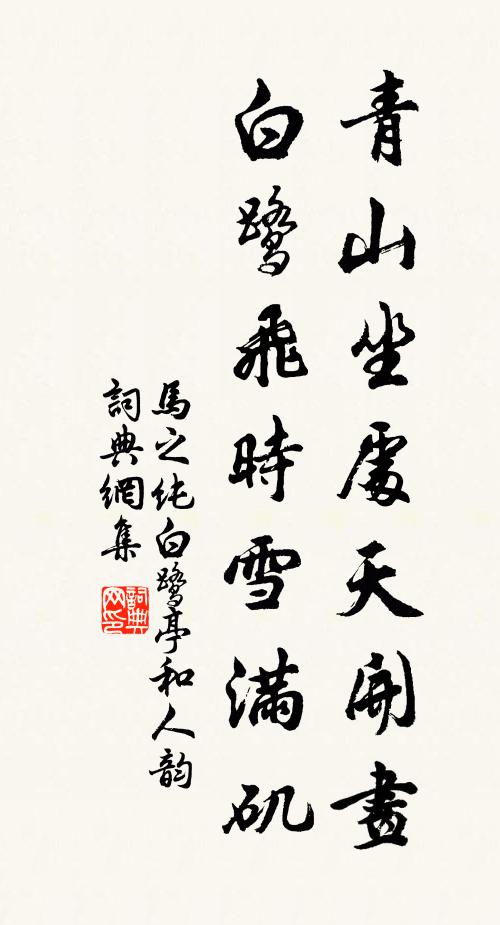 青山坐處天開畫
白鷺飛時雪滿矶
馬之純白鷺亭和人韵
詞典網集
詞典网印